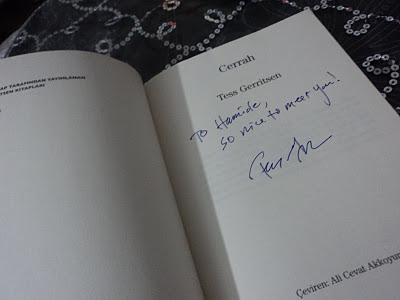 AP TARAFINDAN YAYINLANAN
TSEN KİTAPLARI
Cerrah
Tess Gerritsen
To Hamide,
so nice to meet you!
Çeviren: Ali Cevat Akkoyun